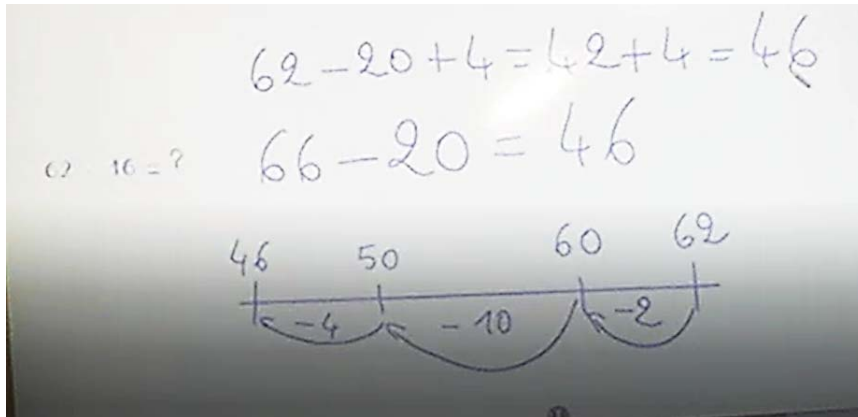 62 - 20 + 4 = 42 + 4 = 46
66 - 20 = 46
62 - 16 = ?
46 50 60 62
-4 -10 -2